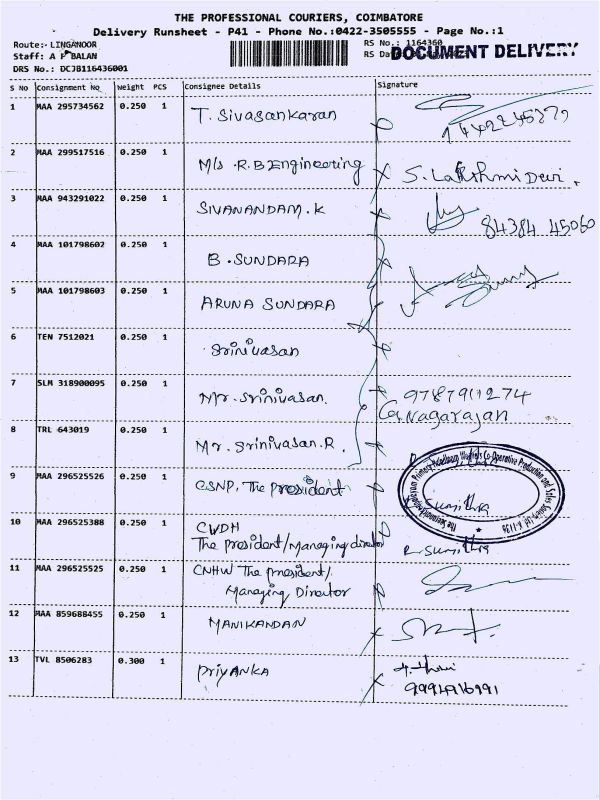 THE PROFESSIONAL COURIERS, COIMBATORE
Delivery Runsheet - P41 - Phone No.:0422-3505555 - Page No.:1
Route:- LINGANOOR
RS No.: 1164360
DOCUMENT DELIVERY
Staff: A P BALAN
RS Da
DRS No.: DCJB116436001
S No Consignment No Weight PCS Consignee Details Signature
1 MAA 295734562 0.250 1 T. Sivasankaran
2 MAA 299517516 0.250 1 M/s R.B Engineering S. Lakshmi Devi.
3 MAA 943291022 0.250 1 SIVANANDAM.K
84384 45060
4 MAA 101798602 0.250 1 B.SUNDARA
5 MAA 101798603 0.250 1 ARUNA SUNDARA
6 TEN 7512021 0.250 1 Srinivasan
7 SLM 318900095 0.250 1 Mr. Srinivasan.
G. Nagarajan
8 TRL 643019 0.250 1 Mr. Srinivasan.R.
9 MAA 296525526 0.250 1 CSNP. The president Sumithra
10 MAA 296525388 0.250 1 CWDH
The president/Managing director R. Sumithra
11 MAA 296525525 0.250 1 CNHW The president/.
Managing Director
12 MAA 859688455 0.250 1 MANIKANDAN
13 TVL 8506283 0.300 1 PRIYANKA
9994916991